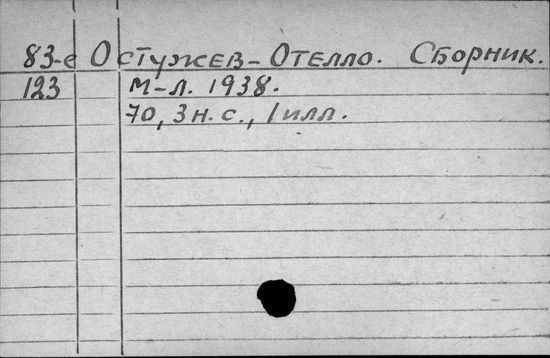 83-е Остужев-Отелло. Сборник.
123 М-Л. 1938.
70, 3 н. с., 1 илл.